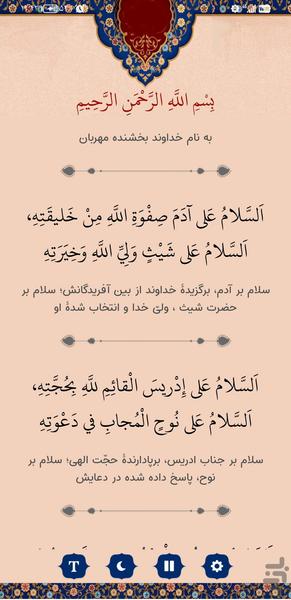 بِسْمِ اللَّهِ الرَّحْمَنِ الرَّحِيمِ
به نام خداوند بخشنده مهربان
اَلسَّلامُ عَلى آدَمَ صِفْوَةِ اللَّهِ مِنْ خَليقَتِهِ،
اَلسَّلامُ عَلى شَيْثٍ وَلِيِّ اللَّهِ وَخِيَرَتِهِ
سلام بر آدم، برگزیدهٔ خداوند از بین آفریدگانش؛ سلام بر
حضرت شیث ، ولیّ خدا و انتخاب شدهٔ او
اَلسَّلامُ عَلى إِدْريسَ الْقائِمِ للَّهِ بِحُجَّتِهِ،
اَلسَّلامُ عَلى نُوحٍ الْمُجابِ في دَعْوَتِهِ
سلام بر جناب ادریس، برپادارندهٔ حجّت الهی؛ سلام بر
نوح، پاسخ داده شده در دعایش
T
بازار